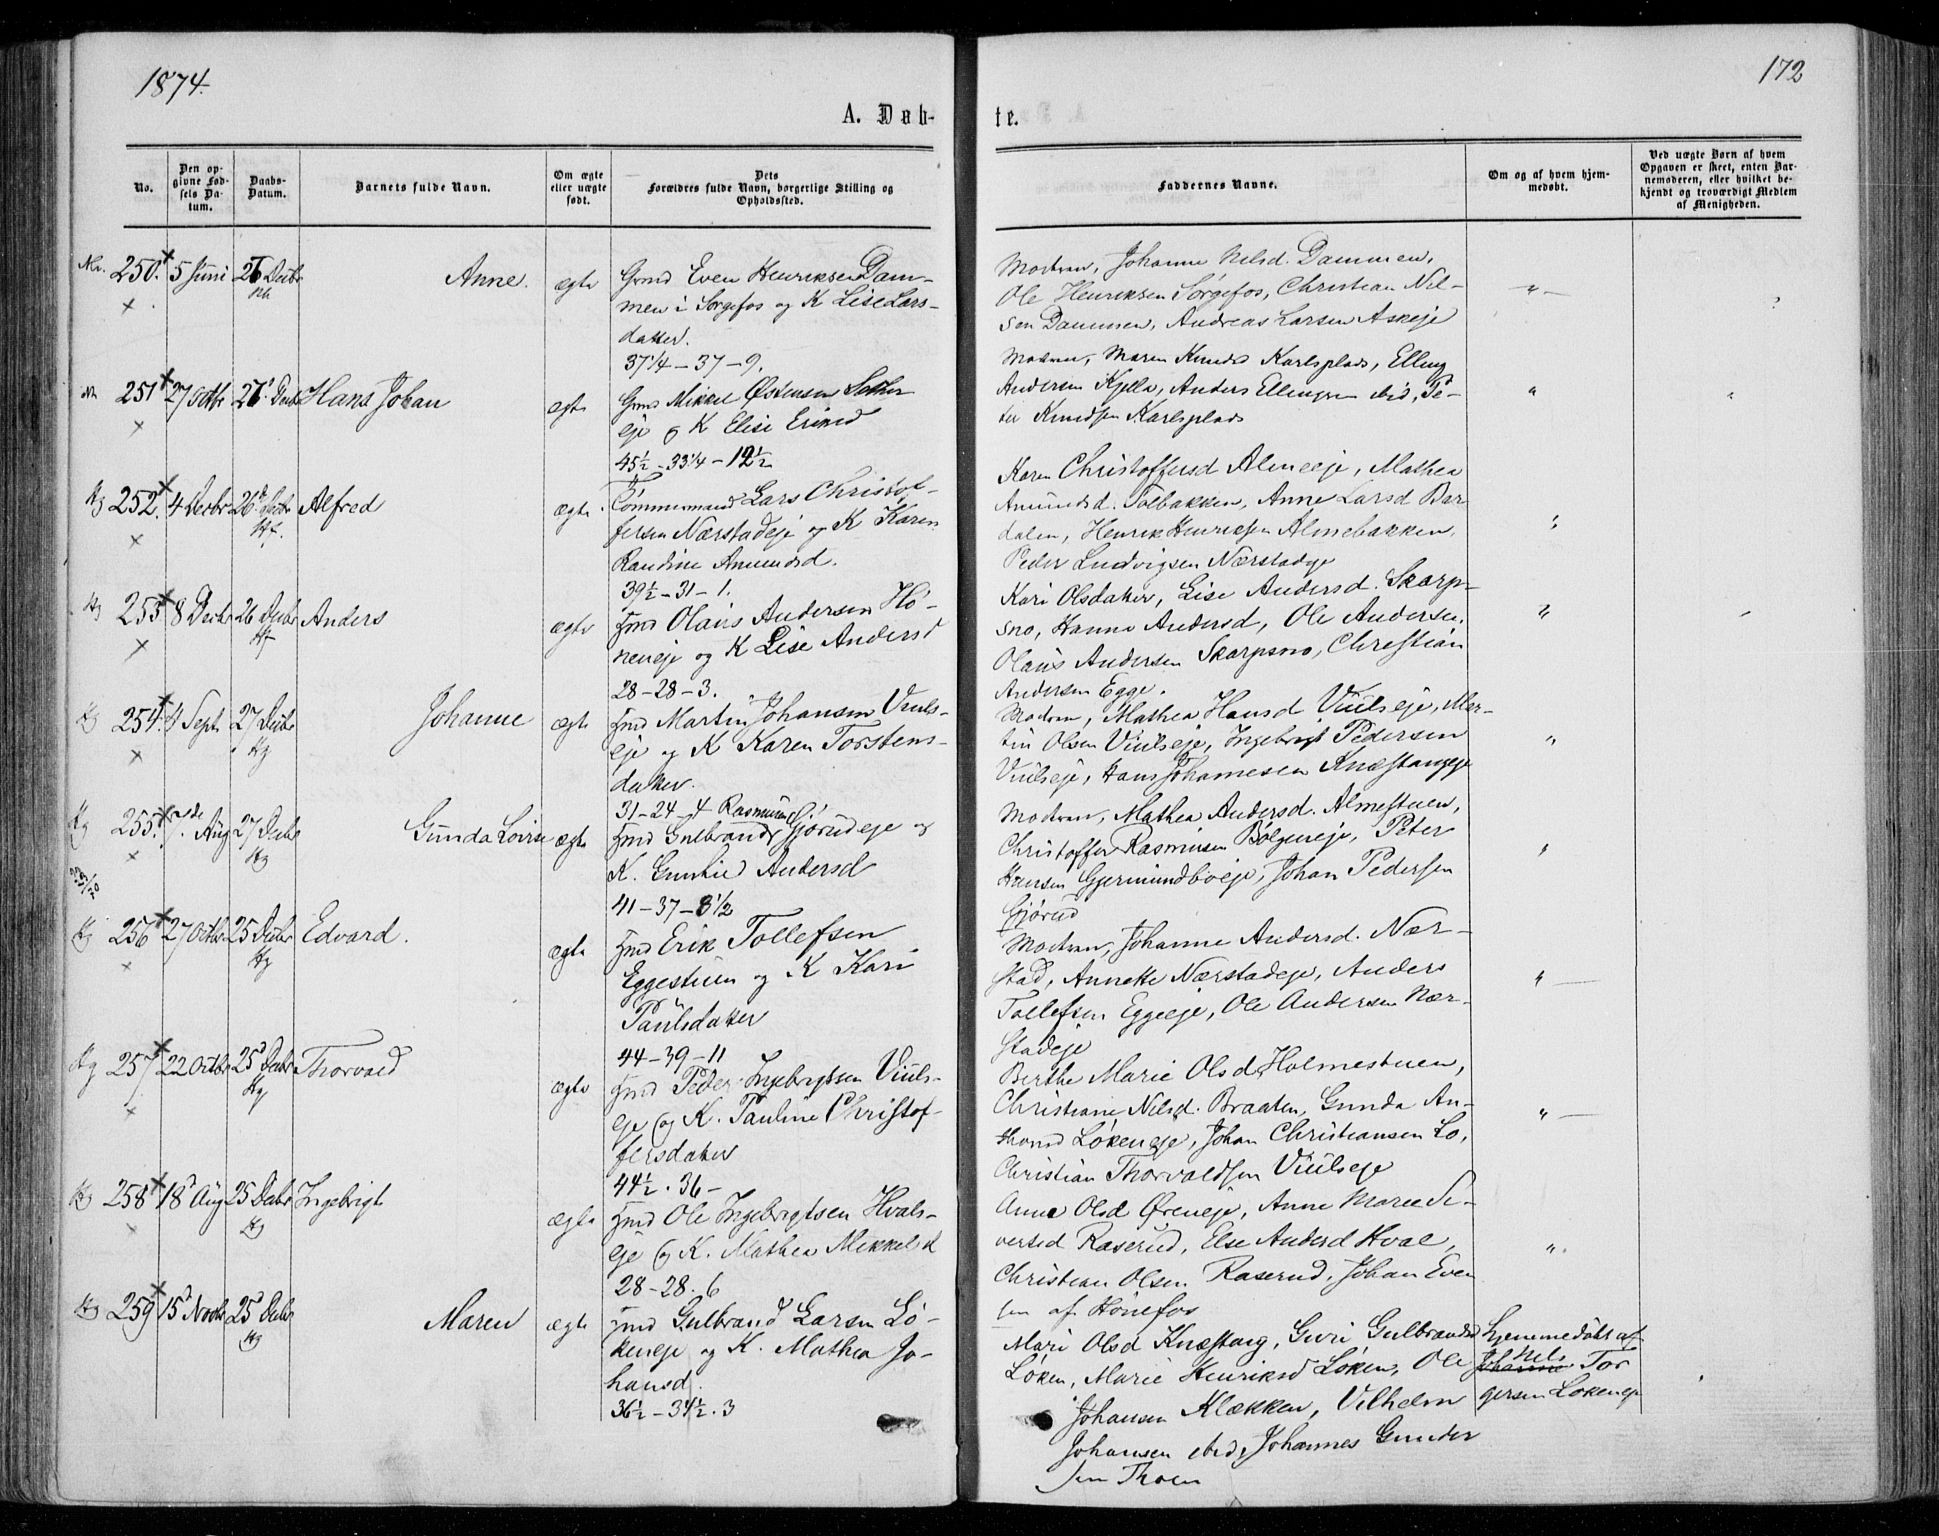 1874.
172
A. Døb-
te.
No.
Den op-
givne Fød-
sels Da-
tum.
Daabs-
Datum.
Barnets fulde Navn.
Om ægte
eller uægte
født.
Dets
Forældres fulde Navn, borgerlige Stilling og
Opholdssted.
Faddernes Navne.
Om og af hvem hjem-
medøbt.
Ved uægte Børn af hvem
Opgaven er skeet, enten Bar-
nemoderen, eller hvilket be-
kjendt og troværdigt Medlem
af Menigheden.
250. 5 Juni 26 Decbr Anne. ægte
Gmd Even Henriksen Dam-
men i Sørgefos og K Lise Lars-
datter.
37 1/4 - 37 - 9.
Modren, Johanne Nilsd. Dammen,
Ole Henriksen Sørgefos, Christian Nil-
sen Dammen, Andreas Larsen Askeje
251 27 Octbr 26 Decbr Hans Johan ægte
Gmd Mikkel Østensen Sether
eje og K Elise Eriksd
45 1/2 - 33 1/4 - 12 1/2
Modren, Maren Knudsd Karlsplads, Elling
Andersen Kjella, Anders Ellingsen ibid, Pe-
ter Knudsen Karlsplads
252. 4 Decbr 26 Decbr Alfred ægte
Tømmermand Lars Christof-
fersen Nærstadeje og K Karen
Randine Amundsd.
39 1/2 - 31 - 1.
Karen Christoffersd Almeeje, Mathea
Amundsd. Solbakken, Anne Larsd Bar-
dalen, Henrik Henriksen Almebakken,
Peder Ludvigsen Nærstadeje
253 8 Decbr 26 Decbr Anders ægte
Hmd Olaus Andersen Hø-
neneje og K Lise Andersd
28 - 28 - 3.
Kari Olsdatter, Lise Andersd. Skarp-
sno, Hanne Andersd, Ole Andersen,
Olaus Andersen Skarpsno, Christian
Andersen Egge.
254. 4 Sept. 27 Decbr Johanne ægte
Hmd Martin Johansen Viuls-
eje og K Karen Torstens-
datter.
31 - 24 - 4
Modren, Mathea Hansd Viulseje, Mar-
tin Olsen Viulseje, Ingebrigt Pedersen
Viulseje, Hans Johannesen Knæstangeje
255. Aug 27 Decbr Gunda Lovise ægte
Rasmussen
Hmd Gulbrand Gjørudeje og
K. Gunhild Andersd
41 - 37 - 8 1/2
Modren, Mathea Andersd. Almestuen,
Christoffer Rasmusen Bølgeneje, Peter
Hansen Gjermundboeje, Johan Pedersen
Gjørud
256 27 Octbr 25 Decbr Edvard. ægte
Hmd Erik Tollefsen
Eggestuen og K Kari
Paulsdatter
44 - 39 - 11
Modren, Johanne Andersd. Nær-
stad, Annette Nærstadeje, Anders
Tollefsen Eggeeje, Ole Andersen Nær-
stadeje
257 22 Octbr 25 Decbr Thorvald ægte
Hmd Peder Ingebrigtsen Viuls-
eje og K. Pauline Christof-
fersdatter
44 1/2 . 36 -
Berthe Marie Olsd Holmestuen,
Christiane Nilsd. Braaten, Gunda An-
thonsd Løkeneje, Johan Christiansen Lo,
Christian Thorvaldsen Viulseje
258 18 Aug 25 Decbr Ingebrigt ægte
Hmd Ole Ingebrigtsen Hvals-
eje og K. Mathea Mikkelsd
28 - 28 . 6
Anne Olsd Øreneje, Anne Marie Si-
versd Raserud, Else Andersd Hval,
Christian Olsen Raserud, Johan Even
sen af Hønefos
259 15 Novbr 25 Decbr Maren ægte
Hmd Gulbrand Larsen Lø-
keneje og K. Mathea Jo-
hansd.
36 1/2 - 34 1/2 . 3
Mari Olsd Knæstang, Guri Gulbrandsd
Løken, Marie Henriksd Løken, Ole
Johansen Klækken, Vilhelm
Johansen ibid, Johannes Gunder
sen Thoen
hjemmedøbt af
Nels
Johanne Tor
gersen Løkeneje